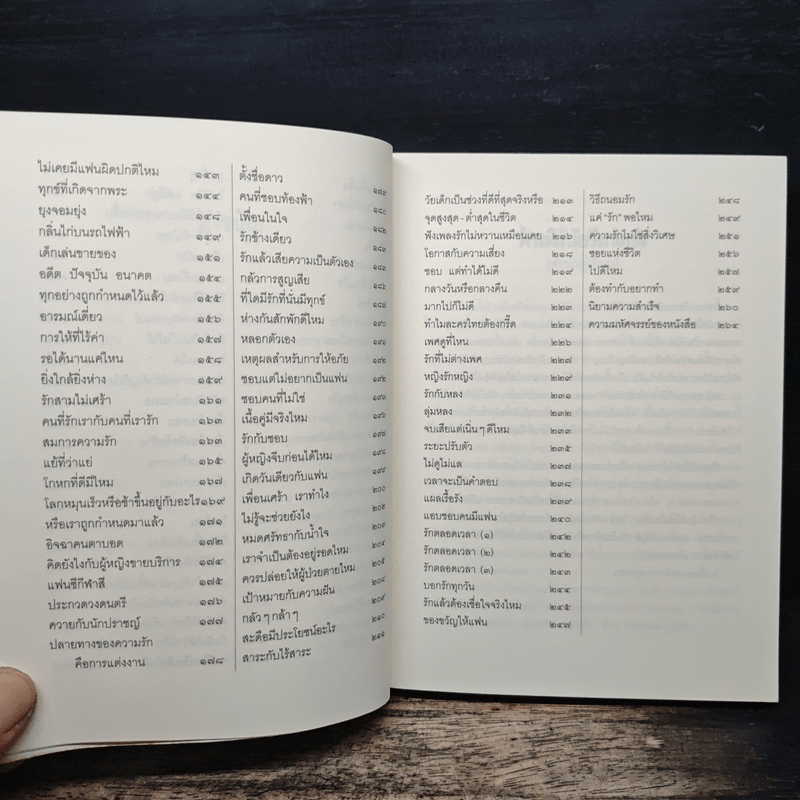 ไม่เคยมีแฟนผิดปกติไหม ๑๔๓
ทุกข์ที่เกิดจากพระ ๑๔๔
ยุงจอมยุ่ง ๑๔๘
กลิ่นไก่บนรถไฟฟ้า ๑๔๙
เด็กเล่นขายของ
อดีต ปัจจุบัน อนาคต ๑๕๔
ทุกอย่างถูกกำหนดไว้แล้ว ๑๕๕
อารมณ์เดี่ยว ๑๕๖
การให้ที่ไร้ค่า ๑๕๗
รอได้นานแค่ไหน ๑๕๘
ยิ่งใกล้ยิ่งห่าง ๑๕๙
รักสามไม่เศร้า ๑๖๑
คนที่รักเรากับคนที่เรารัก ๑๖๓
สมการความรัก ๑๖๓
แย้ที่ว่าแย่ ๑๖๕
โกหกที่ดีมีไหม ๑๖๗
โลกหมุนเร็วหรือช้าขึ้นอยู่กับอะไร ๑๖๙
หรือเราถูกกำหนดมาแล้ว ๑๗๑
อิจฉาคนตาบอด ๑๗๒
คิดยังไงกับผู้หญิงขายบริการ ๑๗๔
แฟนซีกีฬาสี ๑๗๕
ประกวดวงดนตรี ๑๗๖
ควายกับนักปราชญ์ ๑๗๗
ปลายทางของความรัก
คือการแต่งงาน ๑๗๘
ตั้งชื่อดาว ๑๗๙
คนที่ชอบท้องฟ้า ๑๘๐
เพื่อนในใจ
รักข้างเดียว
รักแล้วเสียความเป็นตัวเอง
กลัวการสูญเสีย
ที่ใดมีรักที่นั่นมีทุกข์
ห่างกันสักพักดีไหม
หลอกตัวเอง
เหตุผลสำหรับการให้อภัย
ชอบแต่ไม่อยากเป็นแฟน
ชอบคนที่ไม่ใช่
เนื้อคู่มีจริงไหม
รักกับชอบ
ผู้หญิงจีบก่อนได้ไหม
เกิดวันเดียวกับแฟน
เพื่อนเศร้า เราทำไง
ไม่รู้จะช่วยยังไง
หมดศรัทธากับน้ำใจ
เราจำเป็นต้องอยู่รอดไหม
ควรปล่อยให้ผู้ป่วยตายไหม
เป้าหมายกับความฝัน
กลัวๆ กล้าๆ
สะดือมีประโยชน์อะไร
สาระกับไร้สาระ ๒๑๑
วัยเด็กเป็นช่วงที่ดีที่สุดจริงหรือ ๒๑๓
จุดสูงสุด-ต่ำสุดในชีวิต ๒๑๔
ฟังเพลงรักไม่หวานเหมือนเคย ๒๑๖
โอกาสกับความเสี่ยง ๒๑๘
ชอบ แต่ทำได้ไม่ดี ๒๑๙
กลางวันหรือกลางคืน ๒๒๒
มากไปก็ไม่ดี ๒๒๓
ทำไมละครไทยต้องกรี๊ด ๒๒๔
เพศดูที่ไหน ๒๒๖
รักที่ไม่ต่างเพศ ๒๒๗
หญิงรักหญิง ๒๒๙
รักกับหลง ๒๓๑
ลุ่มหลง ๒๓๒
จบเสียแต่เนิ่นๆ ดีไหม ๒๓๓
ระยะปรับตัว ๒๓๕
ไม่ดูไม่แล ๒๓๗
เวลาจะเป็นคำตอบ ๒๓๘
แผลเรื้อรัง ๒๓๙
แอบชอบคนมีแฟน ๒๔๐
รักตลอดเวลา (๑) ๒๔๒
รักตลอดเวลา (๒) ๒๔๒
รักตลอดเวลา (๓) ๒๔๓
บอกรักทุกวัน ๒๔๔
รักแล้วต้องเชื่อใจจริงไหม ๒๔๕
ของขวัญให้แฟน ๒๔๗
วิธีถนอมรัก ๒๔๘
แค่ "รัก" พอไหม ๒๔๙
ความรักไม่ใช่สิ่งวิเศษ ๒๕๑
ซอยแห่งชีวิต ๒๕๖
ไปดีไหม ๒๕๗
ต้องทำกับอยากทำ ๒๕๙
นิยามความสำเร็จ ๒๖๐
ความมหัศจรรย์ของหนังสือ ๒๖๔